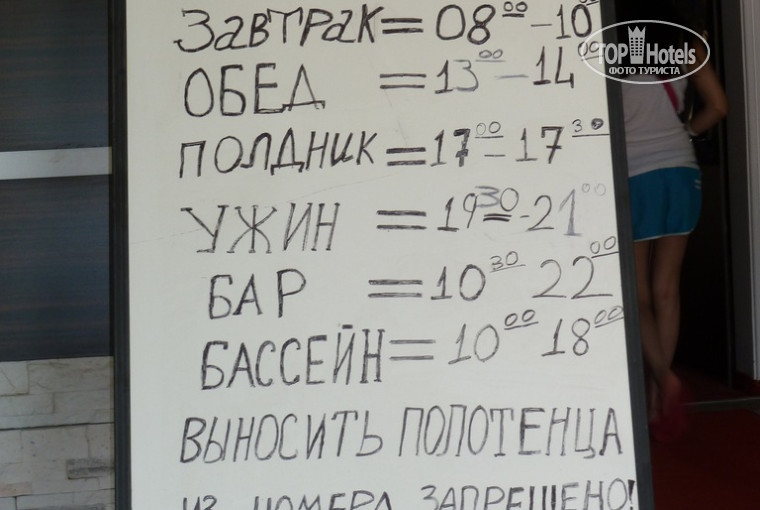 ЗАВТРАК = 08⁰⁰ – 10⁰⁰
ОБЕД = 13⁰⁰ – 14⁰⁰
ПОЛДНИК = 17⁰⁰ – 17³⁰
УЖИН = 19³⁰ - 21⁰⁰
БАР = 10³⁰ 22⁰⁰
БАССЕЙН = 10⁰⁰ 18⁰⁰
ВЫНОСИТЬ ПОЛОТЕНЦА
ИЗ НОМЕРА ЗАПРЕЩЕНО!
TOP Hotels
ФОТО ТУРИСТА